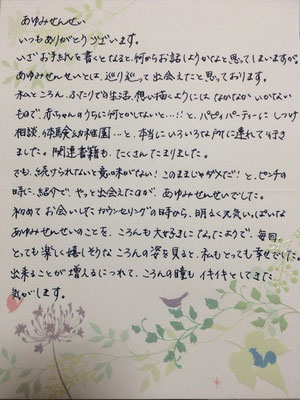 あゆみせんせい
いつもありがとうございます。
いざお手紙を書くとなると、何からお話しようかなと思ってしまいますが、
あゆみせんせいとは、巡り巡って出会えたと思っております。
私ところん、ふたりでの生活、思い描くようにはなかなかいかない
もので、赤ちゃんのうちに何とかしないと…!!と、パピィパーティーにしつけ
相談、体験幼稚園…と、本当にいろいろな所に連れて行き
ました。関連書籍も、たくさんたまりました。
でも、続けられないと意味がない！このままじゃダメだ!!と、ピンチの
時に、紹介で、やっと出会えたのが、あゆみせんせいでした。
初めてお会いしたカウンセリングの時から、明るく元気いっぱいな
あゆみせんせいのことを、ころんも大好きになったようで、毎回
とっても楽し嬉しそうなころんの姿を見ると、私もとっても幸せでした。
出来ることが増えるにつれて、ころんの瞳もイキイキとしてきた
気がします。